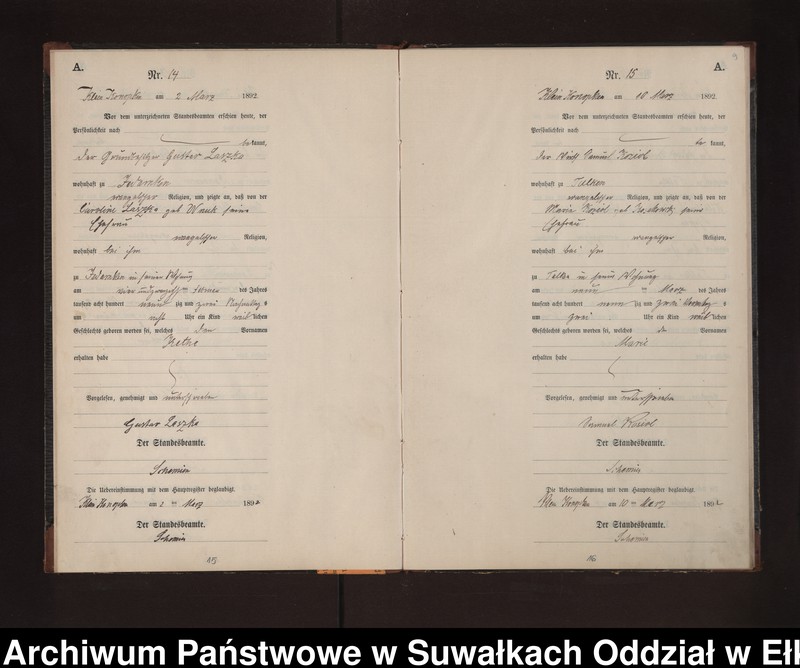 A.
Nr. 14
Klein Konopken am 2 März 1892.
Vor dem unterzeichneten Standesbeamten erschien heute, der
Persönlichkeit nach
bekannt,
der Grundbesitzer Gustav Laszka
wohnhaft zu
evangelischer Religion, und zeigte an, daß von der
Caroline Laszka geb seine
Ehefrau
evangelischer Religion,
wohnhaft bei ihm
zu in seiner Wohnung
am des Jahres
tausend acht hundert neunzig und zwei Nachmittags
um acht Uhr ein Kind weiblichen
Geschlechts geboren worden sei, welches den Vornamen
erhalten habe
Vorgelesen, genehmigt und unterschrieben
Gustav Laszka
Der Standesbeamte.
Die Uebereinstimmung mit dem Hauptregister beglaubigt.
Klein Konopken am 2 ten März 1892
Der Standesbeamte.
A.
Nr. 15
Klein Konopken am 10 März 1892.
Vor dem unterzeichneten Standesbeamten erschien heute, der
Persönlichkeit nach
bekannt,
der Wirth Samuel Koziol
wohnhaft zu Talken
evangelischer Religion, und zeigte an, daß von der
Marie Koziol geb seine
Ehefrau
evangelischer Religion,
wohnhaft bei ihm
zu Talken in seiner Wohnung
am neun ten März des Jahres
tausend acht hundert neunzig und zwei Vormittags
um zwei Uhr ein Kind weiblichen
Geschlechts geboren worden sei, welches den Vornamen
Marie
erhalten habe
Vorgelesen, genehmigt und unterschrieben
Samuel Koziol
Der Standesbeamte.
Die Uebereinstimmung mit dem Hauptregister beglaubigt.
Klein Konopken am 10 ten März 1892
Der Standesbeamte.
Archiwum Państwowe w Suwałkach Oddział w Eł